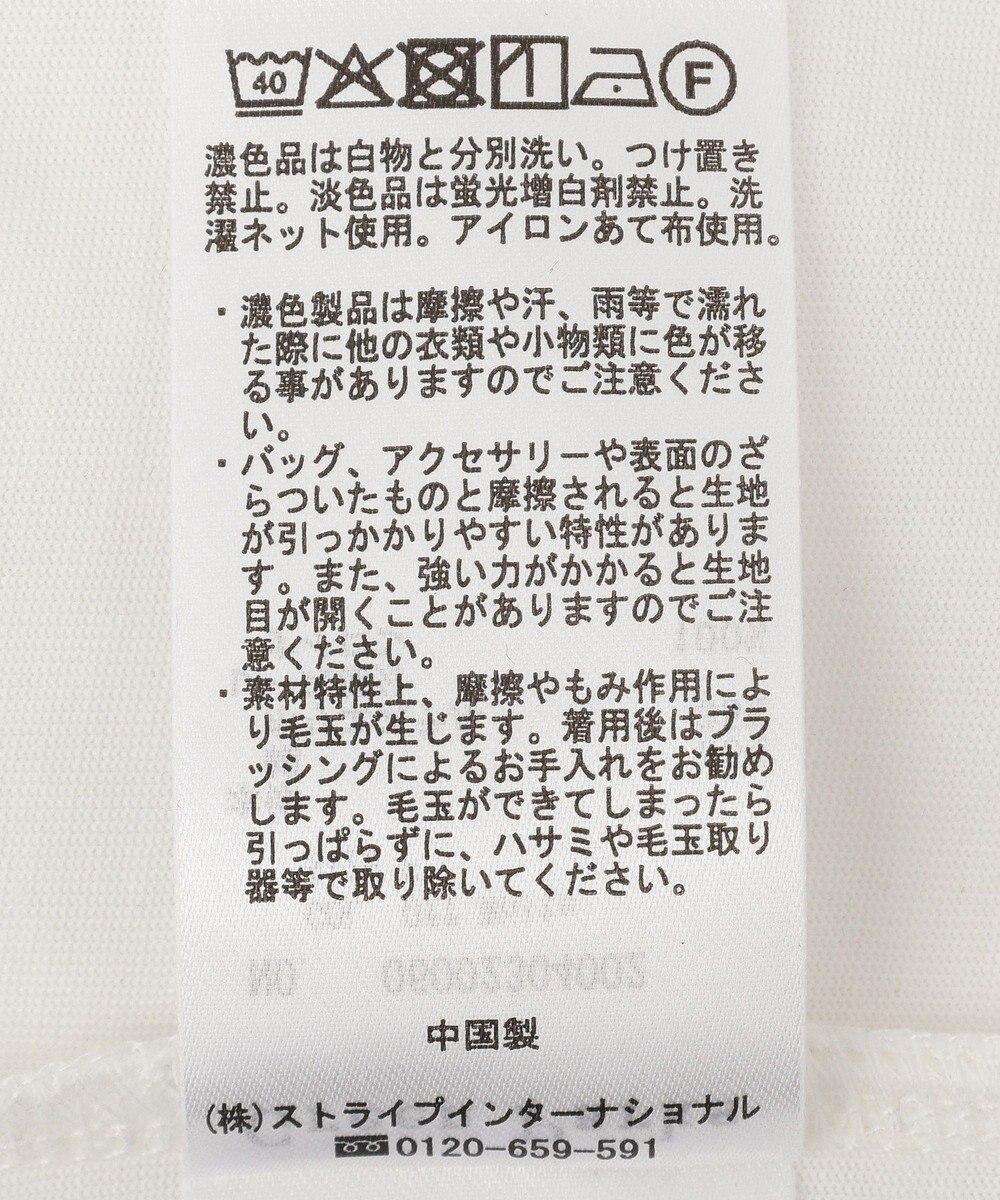 40 F
濃色品は白物と分別洗い。つけ置き
禁止。淡色品は蛍光増白剤禁止。洗
濯ネット使用。アイロンあて布使用。
・濃色製品は摩擦や汗、雨等で濡れ
た際に他の衣類や小物類に色が移
る事がありますのでご注意くださ
い。
・バッグ、アクセサリーや表面のざ
らついたものと摩擦されると生地
が引っかかりやすい特性がありま
す。また、強い力がかかると生地
目が開くことがありますのでご注
意ください。
・素材特性上、摩擦やもみ作用によ
り毛玉が生じます。着用後はブラ
ッシングによるお手入れをお勧め
します。毛玉ができてしまったら
引っぱらずに、ハサミや毛玉取り
器等で取り除いてください。
中国製
(株)ストライプインターナショナル
0120-659-591